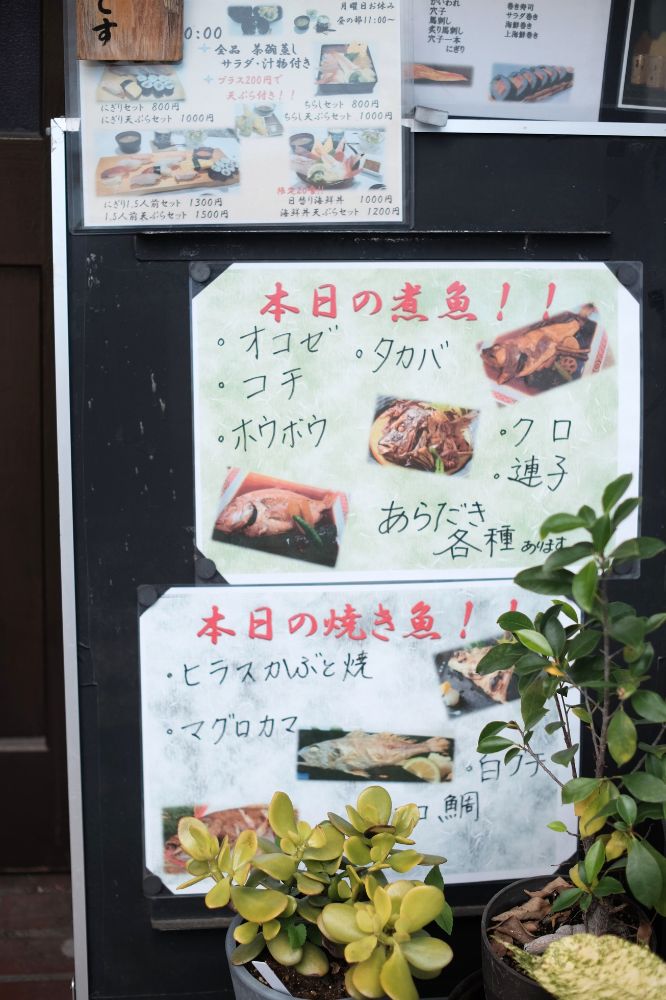 です
0:00
月曜日お休み
昼の部11:00~
全品 茶碗蒸し
サラダ・汁物付き
プラス200円で
天ぷら付き!!
にぎりセット 800円
にぎり天ぷらセット 1000円
ちらしセット 800円
ちらし天ぷらセット 1000円
にぎり1.5人前セット 1300円
1.5人前天ぷらセット 1500円
限定20食!!
日替り海鮮丼 1000円
海鮮丼天ぷらセット 1200円
かいわれ
穴子
馬刺し
炙り馬刺し
穴子一本
にぎり
巻き寿司
サラダ巻き
海鮮巻き
上海鮮巻き
本日の煮魚!!
・オコゼ
・タカバ
・コチ
・ホウボウ
・クロ
・連子
あらだき
各種あります
本日の焼き魚!!
・ヒラスかぶと焼
・マグロカマ
・白グチ
鯛